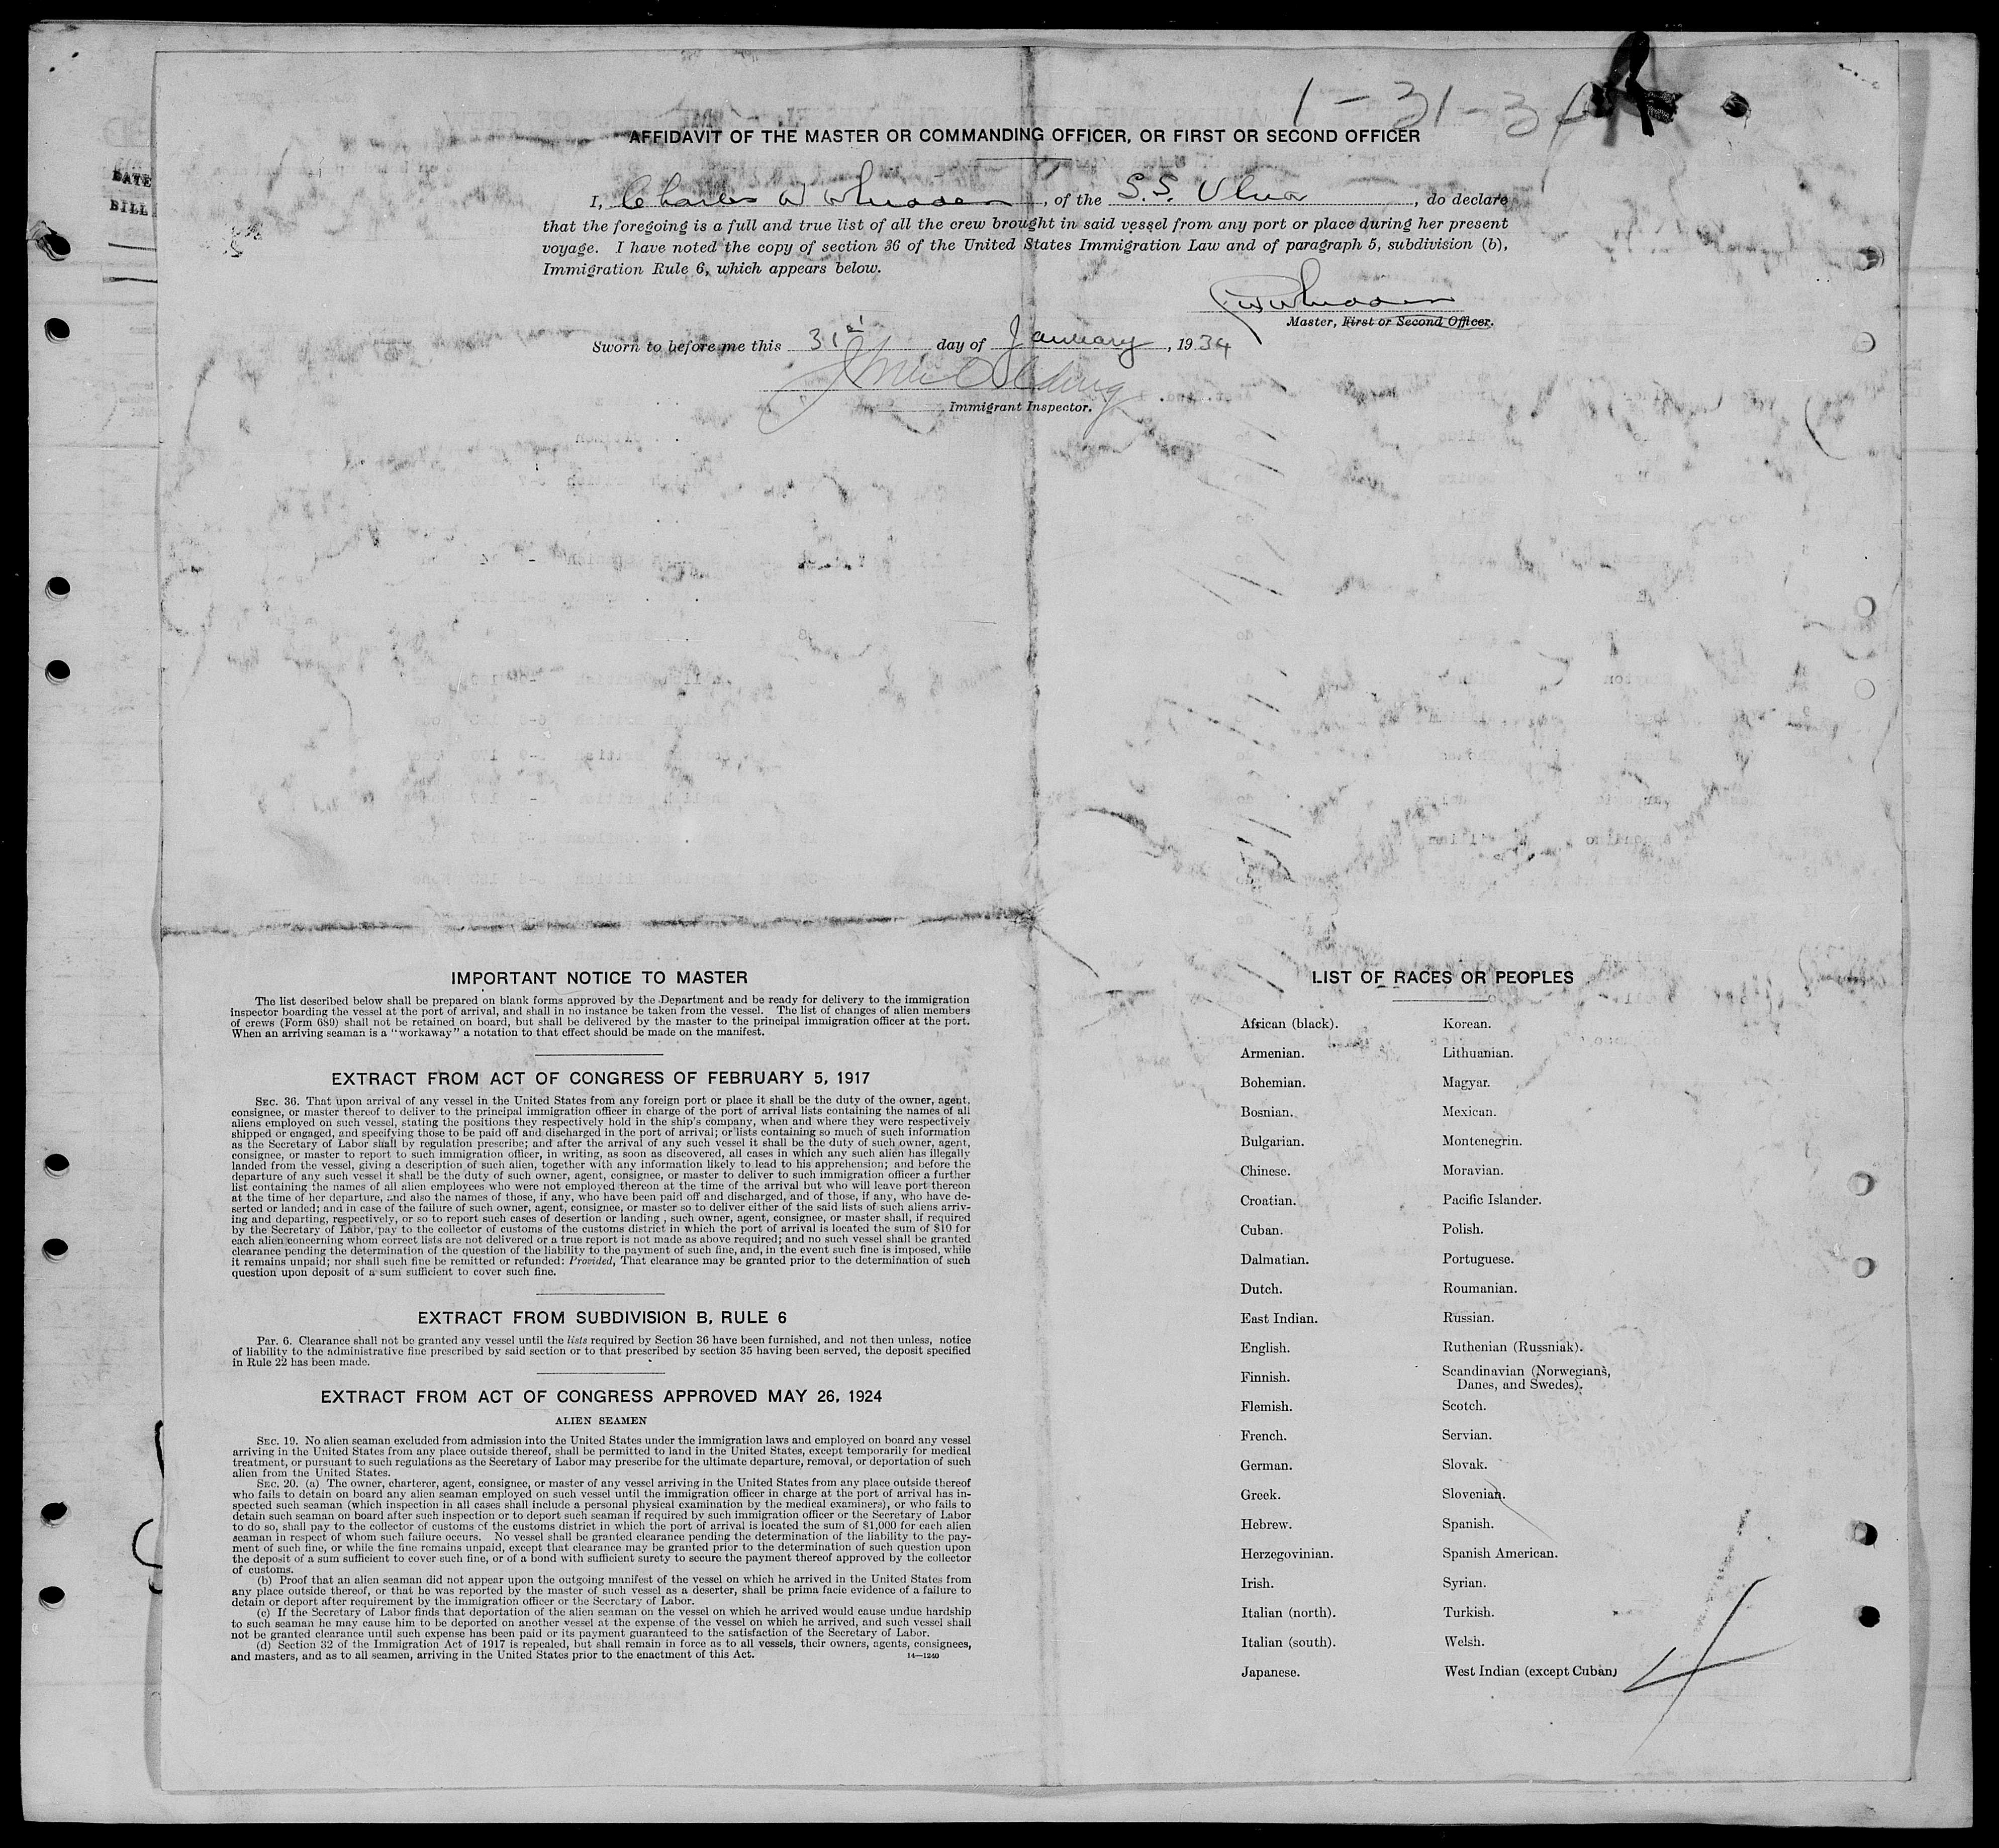 1-31-34
AFFIDAVIT OF THE MASTER OR COMMANDING OFFICER, OR FIRST OR SECOND OFFICER
DATE
BILL
I, Charles W , of the S.S. Ulua, do declare
that the foregoing is a full and true list of all the crew brought in said vessel from any port or place during her present
voyage. I have noted the copy of section 36 of the United States Immigration Law and of paragraph 5, subdivision (b),
Immigration Rule 6, which appears below.
Master, First or Second Officer.
Sworn to before me this 31st day of January, 1934
Immigrant Inspector.
IMPORTANT NOTICE TO MASTER
The list described below shall be prepared on blank forms approved by the Department and be ready for delivery to the immigration
inspector boarding the vessel at the port of arrival, and shall in no instance be taken from the vessel. The list of changes of alien members
of crews (Form 689) shall not be retained on board, but shall be delivered by the master to the principal immigration officer at the port.
When an arriving seaman is a "workaway" a notation to that effect should be made on the manifest.
EXTRACT FROM ACT OF CONGRESS OF FEBRUARY 5, 1917
SEC. 36. That upon arrival of any vessel in the United States from any foreign port or place it shall be the duty of the owner, agent,
consignee, or master thereof to deliver to the principal immigration officer in charge of the port of arrival lists containing the names of all
aliens employed on such vessel, stating the positions they respectively hold in the ship's company, when and where they were respectively
shipped or engaged, and specifying those to be paid off and discharged in the port of arrival; or lists containing so much of such information
as the Secretary of Labor shall by regulation prescribe; and after the arrival of any such vessel it shall be the duty of such owner, agent,
consignee, or master to report to such immigration officer, in writing, as soon as discovered, all cases in which any such alien has illegally
landed from the vessel, giving a description of such alien, together with any information likely to lead to his apprehension; and before the
departure of any such vessel it shall be the duty of such owner, agent, consignee, or master to deliver to such immigration officer a further
list containing the names of all alien employees who were not employed thereon at the time of the arrival but who will leave port thereon
at the time of her departure, and also the names of those, if any, who have been paid off and discharged, and of those, if any, who have de-
serted or landed; and in case of the failure of such owner, agent, consignee, or master so to deliver either of the said lists of such aliens arriv-
ing and departing, respectively, or so to report such cases of desertion or landing , such owner, agent, consignee, or master shall, if required
by the Secretary of Labor, pay to the collector of customs of the customs district in which the port of arrival is located the sum of $10 for
each alien concerning whom correct lists are not delivered or a true report is not made as above required; and no such vessel shall be granted
clearance pending the determination of the question of the liability to the payment of such fine, and, in the event such fine is imposed, while
it remains unpaid; nor shall such fine be remitted or refunded: Provided, That clearance may be granted prior to the determination of such
question upon deposit of a sum sufficient to cover such fine.
EXTRACT FROM SUBDIVISION B, RULE 6
Par. 6. Clearance shall not be granted any vessel until the lists required by Section 36 have been furnished, and not then unless, notice
of liability to the administrative fine prescribed by said section or to that prescribed by section 35 having been served, the deposit specified
in Rule 22 has been made.
EXTRACT FROM ACT OF CONGRESS APPROVED MAY 26, 1924
ALIEN SEAMEN
SEC. 19. No alien seaman excluded from admission into the United States under the immigration laws and employed on board any vessel
arriving in the United States from any place outside thereof, shall be permitted to land in the United States, except temporarily for medical
treatment, or pursuant to such regulations as the Secretary of Labor may prescribe for the ultimate departure, removal, or deportation of such
alien from the United States.
SEC. 20. (a) The owner, charterer, agent, consignee, or master of any vessel arriving in the United States from any place outside thereof
who fails to detain on board any alien seaman employed on such vessel until the immigration officer in charge at the port of arrival has in-
spected such seaman (which inspection in all cases shall include a personal physical examination by the medical examiners), or who fails to
detain such seaman on board after such inspection or to deport such seaman if required by such immigration officer or the Secretary of Labor
to do so, shall pay to the collector of customs of the customs district in which the port of arrival is located the sum of $1,000 for each alien
seaman in respect of whom such failure occurs. No vessel shall be granted clearance pending the determination of the liability to the pay-
ment of such fine, or while the fine remains unpaid, except that clearance may be granted prior to the determination of such question upon
the deposit of a sum sufficient to cover such fine, or of a bond with sufficient surety to secure the payment thereof approved by the collector
of customs.
(b) Proof that an alien seaman did not appear upon the outgoing manifest of the vessel on which he arrived in the United States from
any place outside thereof, or that he was reported by the master of such vessel as a deserter, shall be prima facie evidence of a failure to
detain or deport after requirement by the immigration officer or the Secretary of Labor.
(c) If the Secretary of Labor finds that deportation of the alien seaman on the vessel on which he arrived would cause undue hardship
to such seaman he may cause him to be deported on another vessel at the expense of the vessel on which he arrived, and such vessel shall
not be granted clearance until such expense has been paid or its payment guaranteed to the satisfaction of the Secretary of Labor.
(d) Section 32 of the Immigration Act of 1917 is repealed, but shall remain in force as to all vessels, their owners, agents, consignees,
and masters, and as to all seamen, arriving in the United States prior to the enactment of this Act. 14—1240
LIST OF RACES OR PEOPLES
African (black).
Armenian.
Bohemian.
Bosnian.
Bulgarian.
Chinese.
Croatian.
Cuban.
Dalmatian.
Dutch.
East Indian.
English.
Finnish.
Flemish.
French.
German.
Greek.
Hebrew.
Herzegovinian.
Irish.
Italian (north).
Italian (south).
Japanese.
Korean.
Lithuanian.
Magyar.
Mexican.
Montenegrin.
Moravian.
Pacific Islander.
Polish.
Portuguese.
Roumanian.
Russian.
Ruthenian (Russniak).
Scandinavian (Norwegians,
Danes, and Swedes).
Scotch.
Servian.
Slovak.
Slovenian.
Spanish.
Spanish American.
Syrian.
Turkish.
Welsh.
West Indian (except Cuban)
4